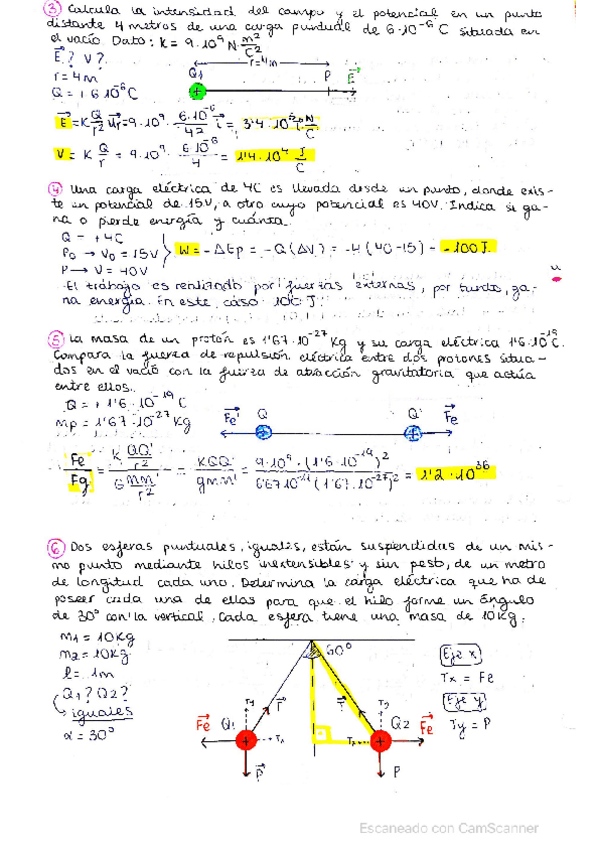 ③ Calcula la intensidad del campo y el potencial en un punto
distante 4 metros de una carga puntual de 6·10⁻⁶ C situada en
el vacío. Dato: K = 9·10⁹ N·m²/C²
E? V?
r = 4m
Q = +6·10⁻⁶C
Q₁ r=4m P E
E = K Q/r² ur = 9·10⁹ · 6·10⁻⁶/4² i =
V = K Q/r = 9·10⁹ · 6·10⁻⁶/4 = 1'4·10⁴ J/C
④ Una carga eléctrica de 4C es llevada desde un punto, donde exis-
te un potencial de 15V, a otro cuyo potencial es 40V. Indica si ga-
na o pierde energía y cuánta.
Q = +4C
P₀ → V₀ = 15V
P → V = 40V
W = -ΔEp = -Q(ΔV) = -4(40-15) = -100J.
El trabajo es realizado por fuerzas externas, por tanto, ga-
na energía. En este caso 100 J.
⑤ La masa de un protón es 1'67·10⁻²⁷ Kg y su carga eléctrica 1'6·10⁻¹⁹C.
Compara la fuerza de repulsión eléctrica entre dos protones situa-
dos en el vacío con la fuerza de atracción gravitatoria que actúa
entre ellos.
Q = +1'6·10⁻¹⁹ C
mp = 1'67·10⁻²⁷ Kg
Fe' Q Q' Fe
Fe/Fg = K QQ'/r² / G mm'/r² = KQQ'/gmm' = 9·10⁹·(1'6·10⁻¹⁹)²/6'67·10⁻¹¹(1'67·10⁻²⁷)² = 1'2·10³⁶
⑥ Dos esferas puntuales, iguales, están suspendidas de un mis-
mo punto mediante hilos inextensibles y sin peso, de un metro
de longitud cada uno. Determina la carga eléctrica que ha de
poseer cada una de ellas para que el hilo forme un ángulo
de 30º con la vertical. Cada esfera tiene una masa de 10Kg.
m₁ = 10Kg
m₂ = 10Kg
l = 1m
Q₁? Q₂?
iguales
α = 30º
60º
Ty T T Ty
Fe Q₁ Tx Tx Q₂ Fe
P P
Eje x
Tx = Fe
Eje y
Ty = P
Escaneado con CamScanner